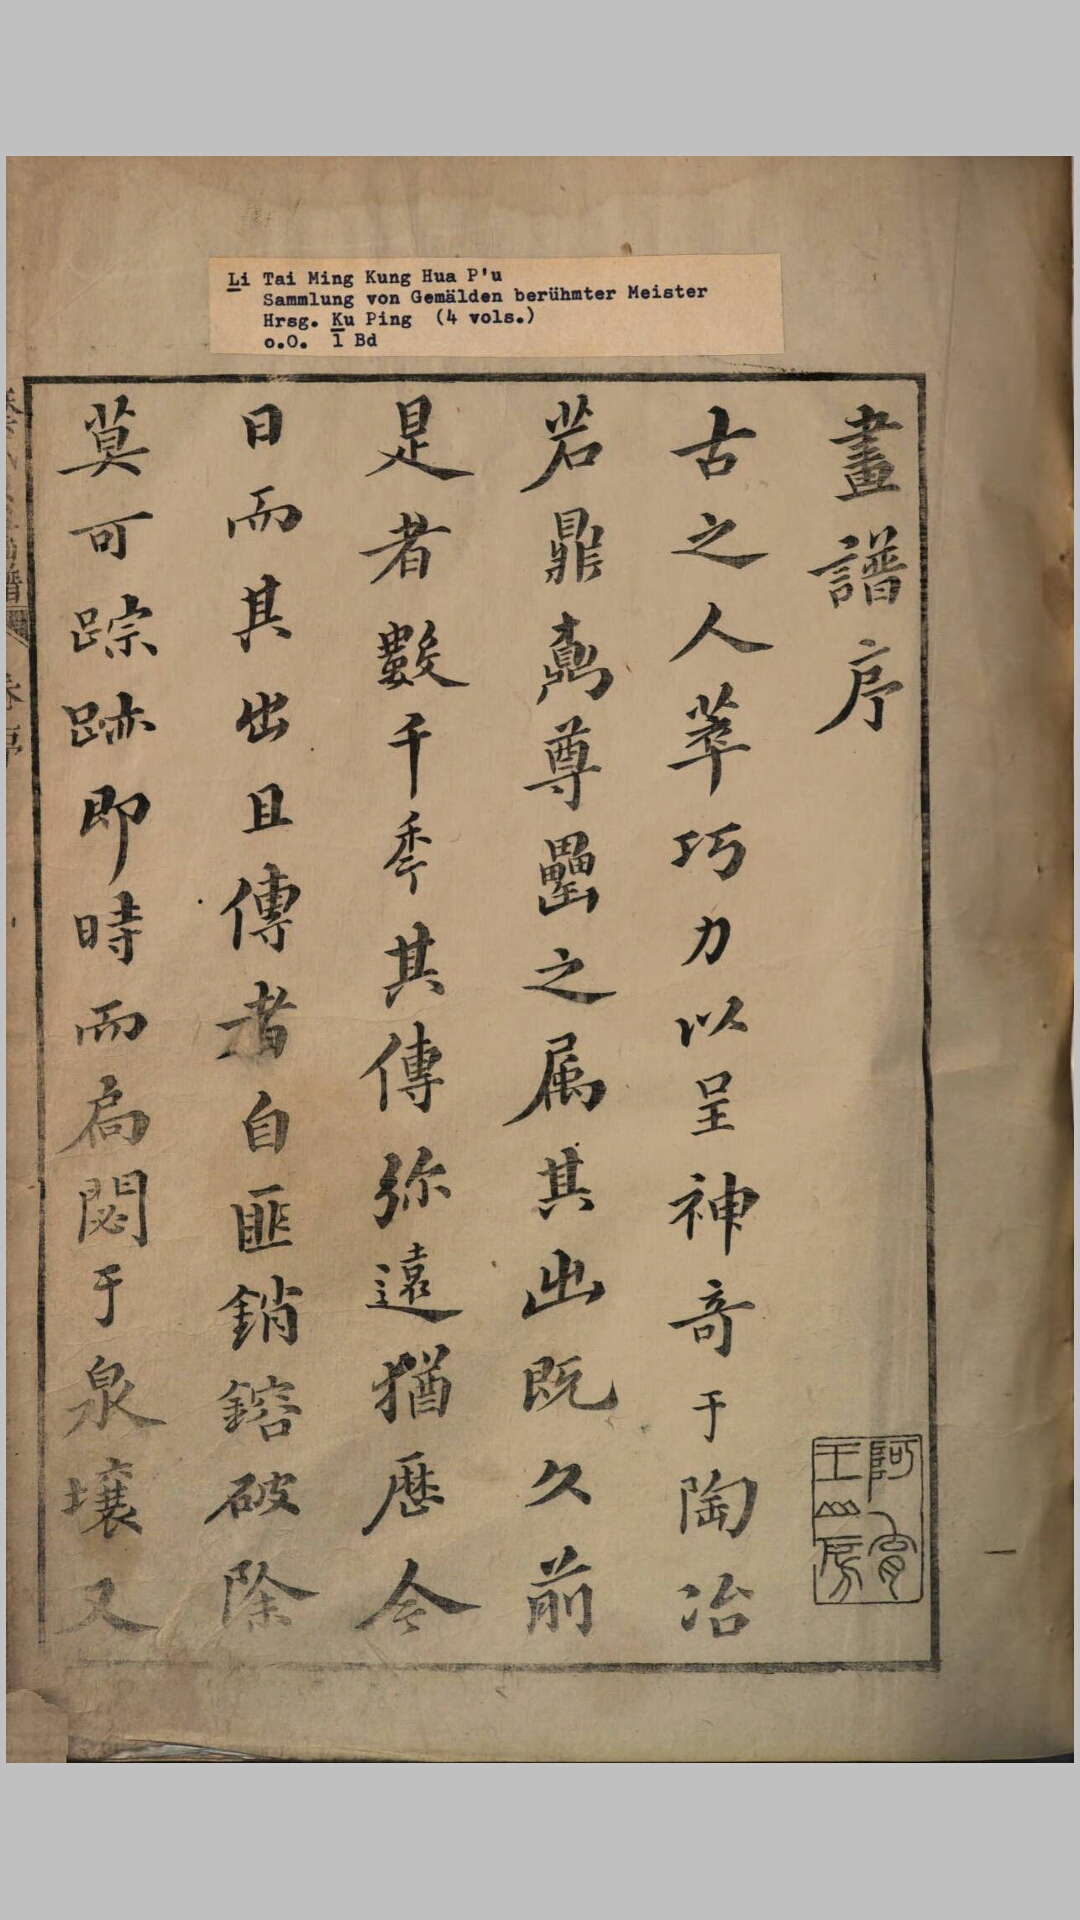 Li Tai Ming Kung Hua P'u
Sammlung von Gemälden berühmter Meister
Hrsg. Ku Ping (4 vols.)
o.O. 1 Bd
畫譜序
古之人萃巧力以呈神奇于陶冶
若鼎鼒尊罍之属其出既久前
是者數千秊其傳弥遠猶歷今
日而其出且傳者自匪銷鎔破除
莫可踪跡即時而扃閟于泉壤又
阿育
王山房
一